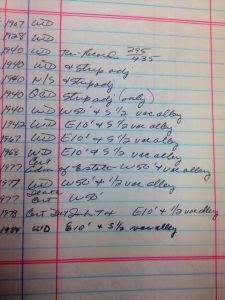 1907 WD
1928 WD
1940 WD Re-Record 295/435
1940 WD & Strip adj
1940 N/S & Strip adj
1940 QCD Strip adj (only)
1940 WD W50' & S 1/2 vac alley
1942 WD E10' & S 1/2 vac alley
1967 WD E10' & S 1/2 vac alley
1968 WD E10' & S 1/2 vac alley
1977 Cert of Estate W50' & vac alley
1977 WD W50' & 1/2 vac alley
1977 Death Cert W50'
1978 Cert E10' & 1/2 vac alley
1984 WD E10' & S 1/2 vac alley